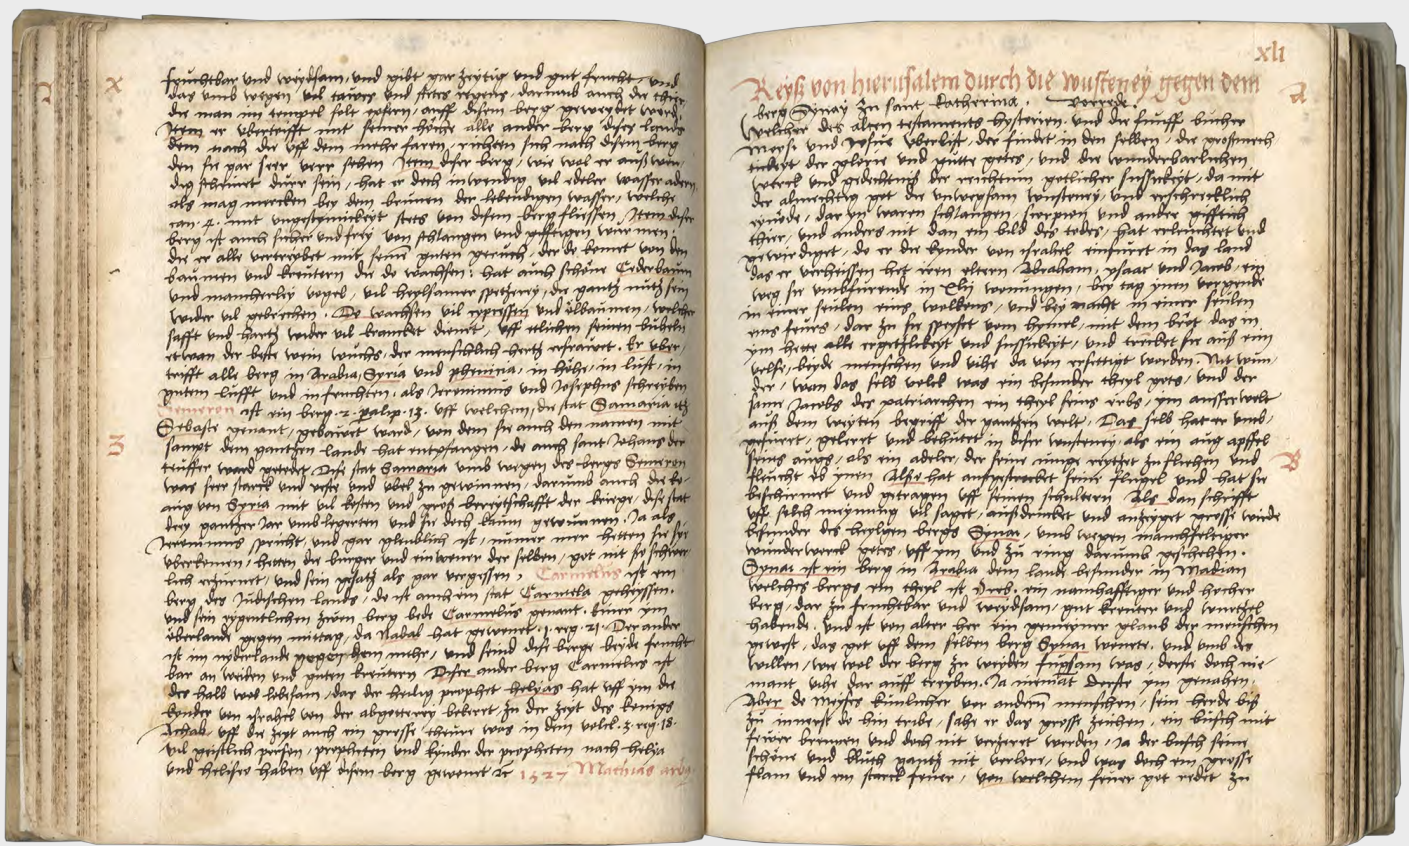 X
fruchtbar und weydsam, und gibt gar zeytig und gut frucht, und
das umb wegen vil tawes und stets regens, darumb auch die thier
die man im tempel solt opfern, auff disem berg geweydet word.
Item er ubertrifft mit seiner höhe alle ander berg dises lands
dem nach die uff dem mehr faren, richten sich nach disem berg
den sie gar seer verr sehen Item diser berg, wie wol er außwen-
dig scheinet durr sein, hat er doch inwendig vil edeler wasser adern
als mag mercken bey dem brunen der lebendigen wasser, welche
can. 4. mit ungestymickeyt stets von disem berg fliessen, Item diser
berg ist auch sicher und frey von schlangen und gifftigen würmen,
die er alle vertreybet mit seine guten geruch, der do komet von den
baumen und kreutern die do wachsen: hat auch schöne Cederbaum
und mancherley vogel, vil heylsamer spetzerey, die gantz nutz sein
wider vil gebrechen. Do wachsen vil cypressen und ölbaumen, welcher
safft und hartz wider vil kranckeit dienet, uff ettlichen seinen bübeln
etwan der beste wein wuchs, der menschlich hertz erfrawet. Er uber-
trifft alle berg in Arabia, Syria und phenicia, in höhe, in lust, in
gutem lüfft und in feuchten, als Jeronimus und Josephus schreyben
Semeron ist ein berg. 2. palip. 13. uff welchem, die stat Samaria itz
Sebaste genant, gebawet ward, von dem sie auch den namen mit
Z
sampt dem gantzen lande hat entpfangen, do auch sant Johans der
teuffer ward getedet Dise stat Samaria umb wegen des bergs Semeron
was seer starck und veste und ubel zu gewinnen, darumb auch die ko-
nig von Syria mit vil kosten und groß bereytschafft der kriege, dise stat
drey gantzer Jar umblegerten und sie doch kaum gewunnen. Ja als
Jeronimus spricht, und gar glaublich ist, nümer mer hetten sie sye
uberkomen, hetten die burger und einwoner der selben, got nit so schwer-
lich erzurnet, und sein gesatz als gar vergessen, Carmelus ist ein
berg des Judischen lands, do ist auch ein stat Carmela geheyssen.
und sein eygentlichen zwen berg bede Carmelus genant. Einer ym
oberlande gegen mittag, da Nabal hat gewonet. 1. reg. 21. Der ander
ist im nyderlande gegen dem mehr, und seind dise berge beyde frucht
bar an weiden und guten kreutern Diser ander berg Carmelus ist
der halb wol lobesam, das der heilig prophet helyas hat uff ym die
kynder von israhel von der abgotterey bekeret, zu der zeyt des konigs
Achab, uff die zeyt auch ein grosse theüre was in dem volck. 3. reg. 18.
vil geistlich person, propheten und kinder der propheten nach helya
und heliseo haben uff disem berg gewonet 1527 Mathias
xli
Reyß von hierusalem durch die wusteney gegen dem
A
berg Synay zu sant Katherina. Vorrede.
Welcher des alten testaments hystorien. und die funff bucher
Moysi und Josue uberlist, der findet in den selben, die grosmech
tickeyt der glorie und gutte gotes, und die wunderbarlichen
werck und gedechtniß der reichtum gotlicher sussickeyt, da mit
der almechtig got die unwegsam wusteney, und erschrecklich
eynöde, dar yn waren schlangen, scorpion und ander gifftich
thier, und anders nit dan ein bild des todes, hat erleuchtet und
gewirdiget, do er die kynder von israhel einfuret in das land
das er verheissen het iren eltern Abraham, ysaac und Jacob, ein
weg sie umbfurende in Xlij wonungen, bey tag ynen vorgende
in einer seulen eins wolkens, und bey nacht in einer seulen
eins feurs, dar zu sie speyset vom hymel, mit dem brot das in
ym hette alle ergetzlickeyt und sussickeyt, und trencket sie auß eim
velse, beyde menschen und vihe da von ersettigt worden. Nit wun-
der, wan das selb volck was ein besunder theyl gots, und der
same Jacobs des patriarchen ein theyl seins erbs, ym ausserwelt
auß dem weyten begriff der gantzen welt, Das selb hat er umb-
gefüret, geleret und behutet in diser wusteney, als ein aug apffel
B
seins augs, als ein adeler, der seine iunge reytzet zu fliehen und
fleucht ob ynen Also hat ausgestrecket seine flugel und hat sie
beschirmet und getragen uff seinen schultern Als dan schrifft
uff solch meynung vil saget, außdrucket und anzeyget grosse wirde
besunder des heylgen bergs Synai, umb wegen manchfeltiger
wunderwerck gotes, uff ym und zu ring darumb geschehen.
Synai ist ein berg in Arabia dem lande besunder in Madian
welches bergs ein theyl ist Oreb, ein namhafftiger und hocher
berg, dar zu fruchtbar und weydsam, gut kreuter und wurtzel
habende. und ist von alter her ein gemeyner glaub der menschen
gewest, das got uff dem selben berg Synai wonete. und umb des
willen, wie wol der berg zu weyden fugsam was, dorste doch nie-
mant vihe dar auff treyben. Ja niemat dorste ym genahen.
Aber do Moyses künlicher vor andern menschen, sein herde biß
zu innerst do hin tribe, sahe er das grosse zeichen, ein busch mit
fewer brennen und doch nit verzeret werden, Ja der busch seine
schöne und bluth gantz nit verlore, und was doch ein grosse
flam und ein starck feuer, von welchem feuer got redet zu